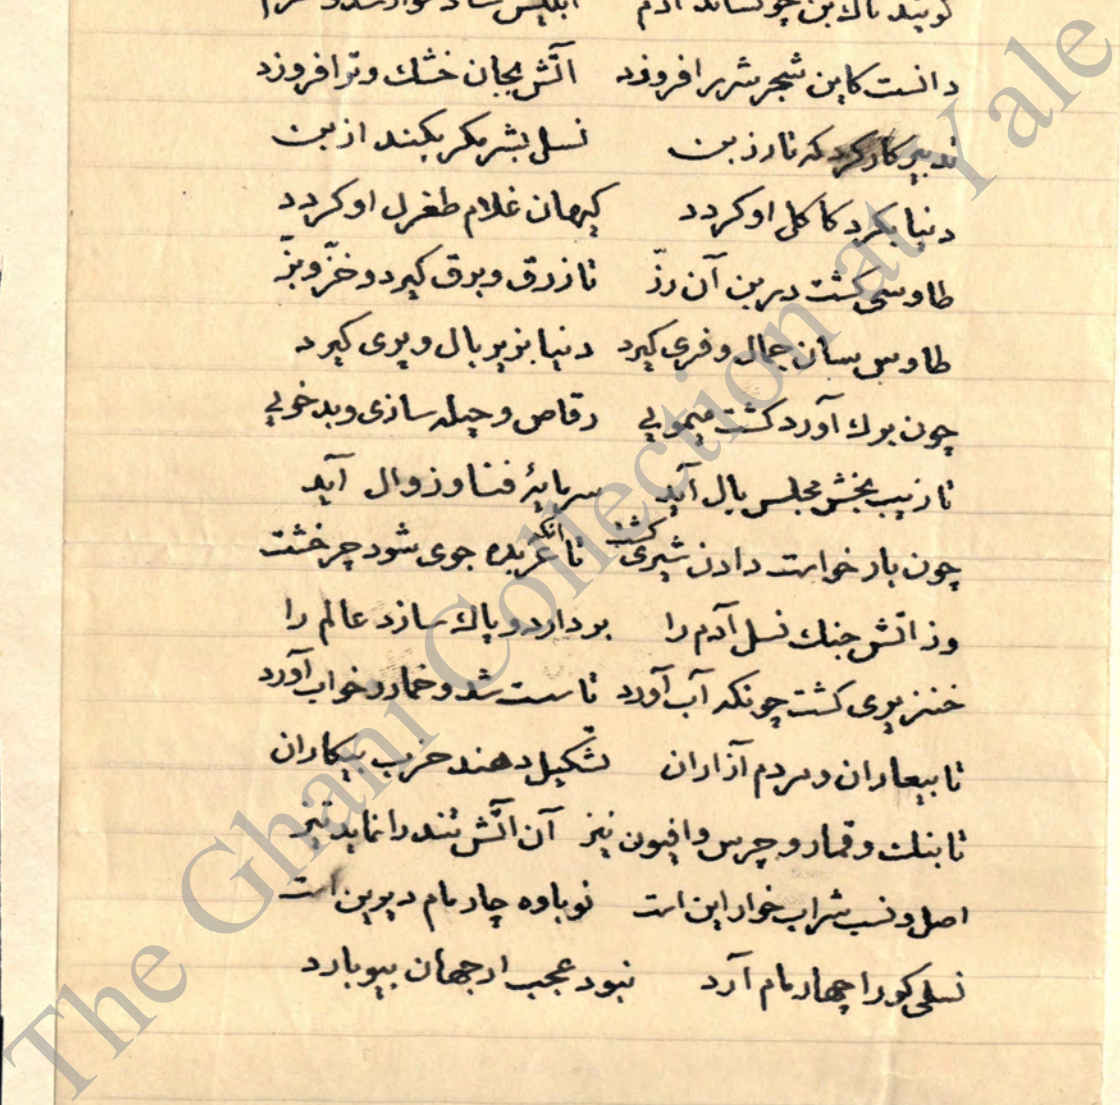 گویند تاک بن چو نشاند آدم    ابلیس شاد خوار شد و خرم
دانست کاین شجر شرر افروزد    آتش بجان خشک و تر افروزد
تدبیر کار کرد که تا رز بن    نسل بشر مگر بکند از بن
دنیا بگرد کاکل او گردد    کیهان غلام طغرل او گردد
طاوسی کشت در بن آن رزّ    تا زرق و برق گیرد و خزّ و بزّ
طاوس بسان جمال و فری گیرد    دنیا بزیر بال و پری گیرد
چون برگ آورد کشت میمونی    رقاص و حیله سازی و بدخویی
تا زیب بخش مجلس بال آید    سرمایهٔ فنا و زوال آید
چون بار خواست دادن شیری کشت    تا عربده جوی شود چرخشت
وز آتش جنگ نسل آدم را    بردارد و پاک سازد عالم را
خنزیری کشت چونکه آب آورد    تا مست شد و خمار و خواب آورد
تا بیعاران و مردم آزاران    تشکیل دهند حزب بیکاران
تا بنگ و قمار و چرس و افیون نیز    آن آتش تند را نماید تیز
اصل و نسب شراب خوار این است    نوباوه چار مام دیرین است
نسلی کو را چهار مام آرد    نبود عجب ار جهان بیوبارد
The Ghani Collection at Yale